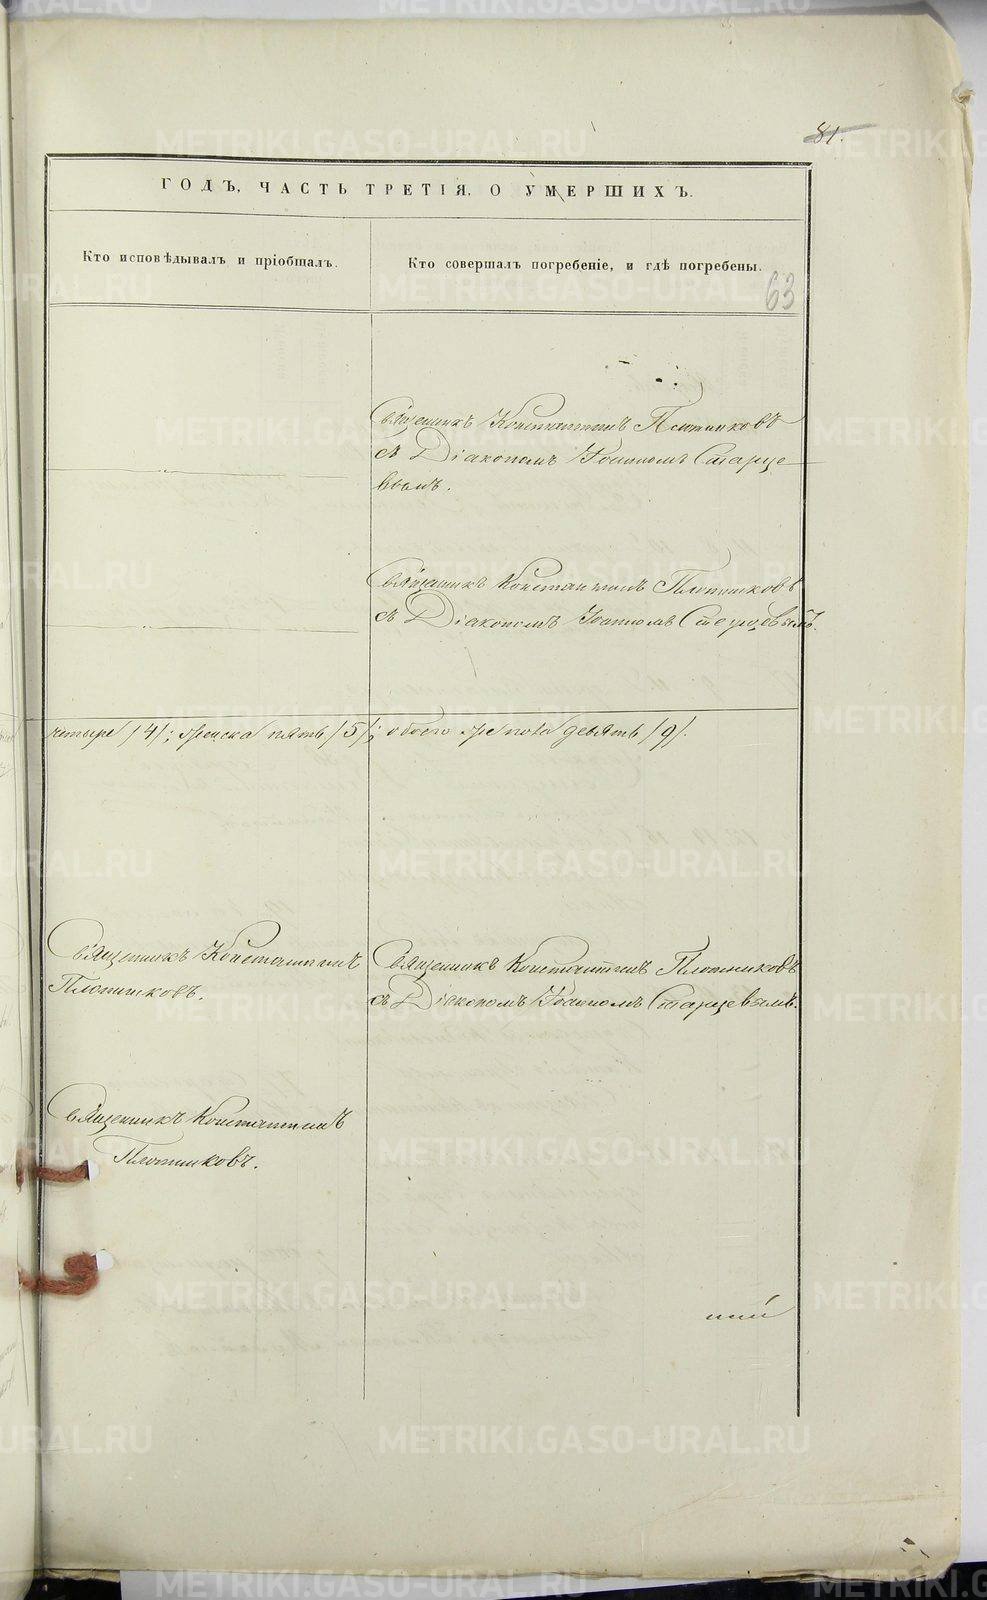 81.
ГОДЪ, ЧАСТЬ ТРЕТІЯ, О УМЕРШИХЪ.
Кто исповѣдывалъ и пріобщалъ.
Кто совершалъ погребеніе, и гдѣ погребены.
63
Священникъ Константинъ Плотниковъ
съ Діакономъ Іоанномъ Старце
вымъ.
Священникъ Константинъ Плотниковъ
съ Діакономъ Іоанномъ Старцевымъ.
четыре /4/; женска пять /5/; обоего пола девять /9/.
Священникъ Константинъ
Плотниковъ.
Священникъ Константинъ Плотниковъ
съ Діакономъ Іоанномъ Старцевымъ.
Священникъ Константинъ
Плотниковъ.
METRIKI.GASO-URAL.RU